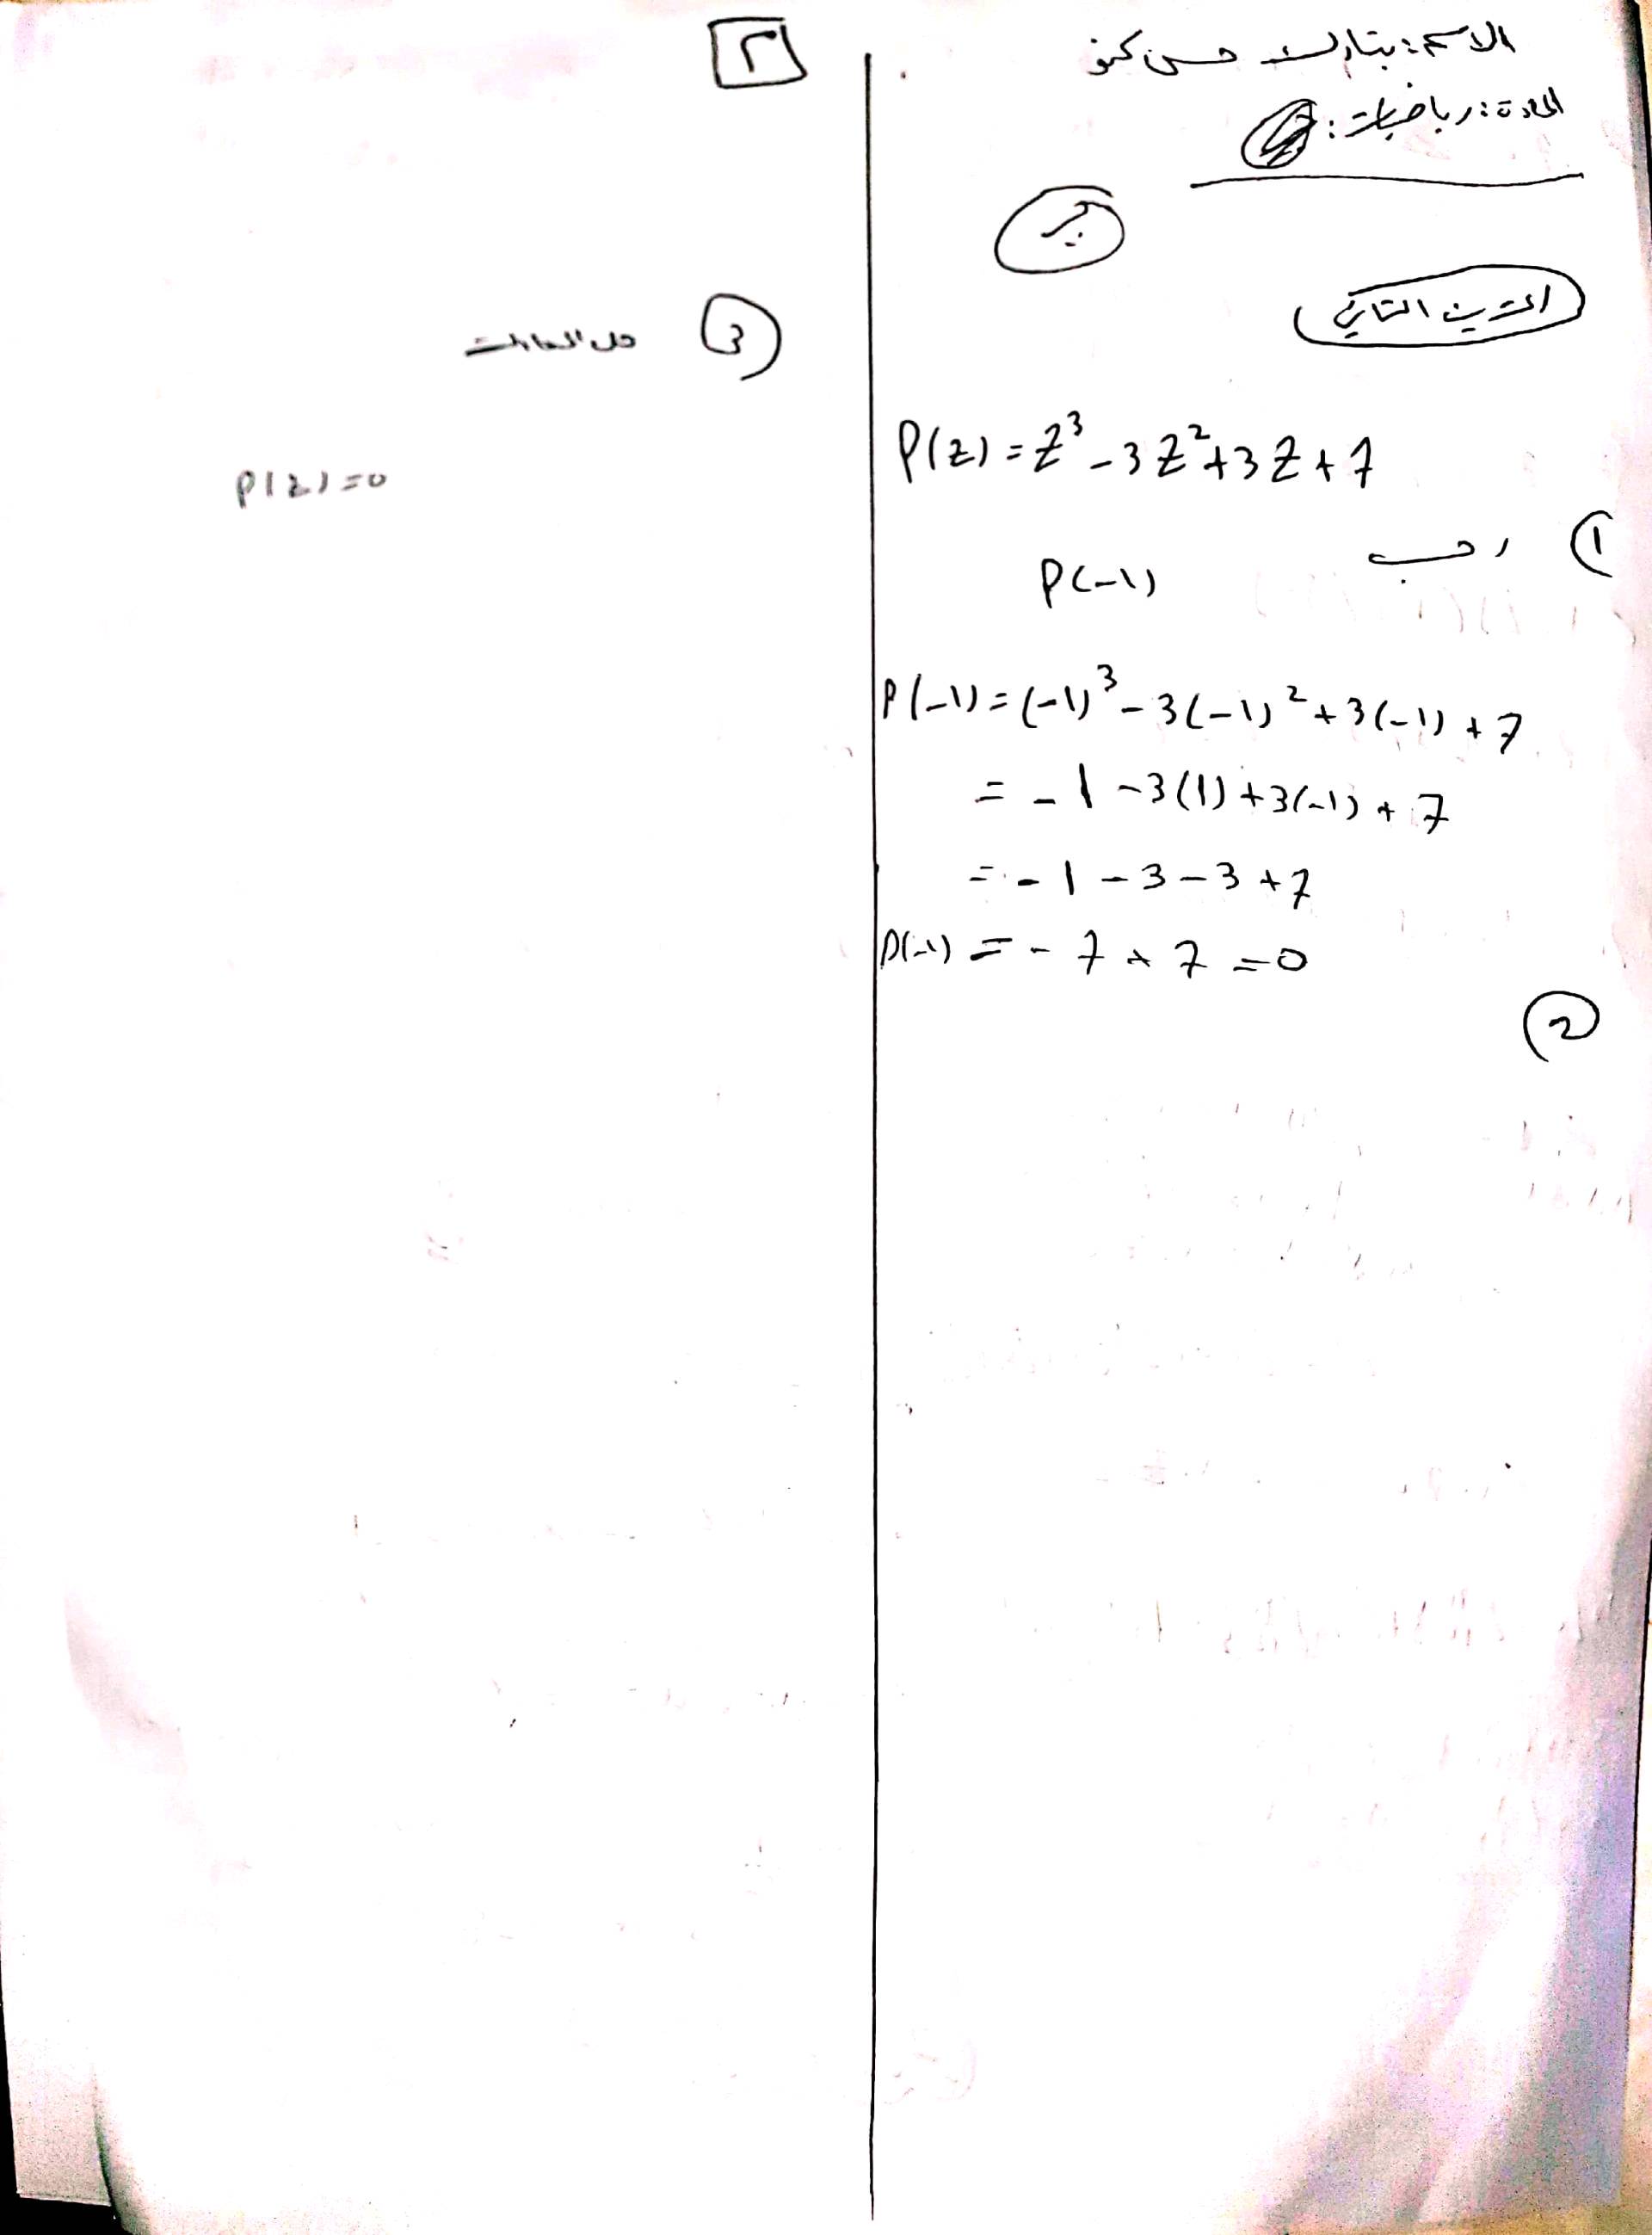 الاسم: بتارك حسن كمو
المادة: رياضيات:
التمرين الثاني
P(z) = z³ - 3z² + 3z + 7
① احسب
P(-1)
P(-1) = (-1)³ - 3(-1)² + 3(-1) + 7
= -1 - 3(1) + 3(-1) + 7
= -1 - 3 - 3 + 7
P(-1) = -7 + 7 = 0
②
٢
③ حل المعادلات
P(z) = 0